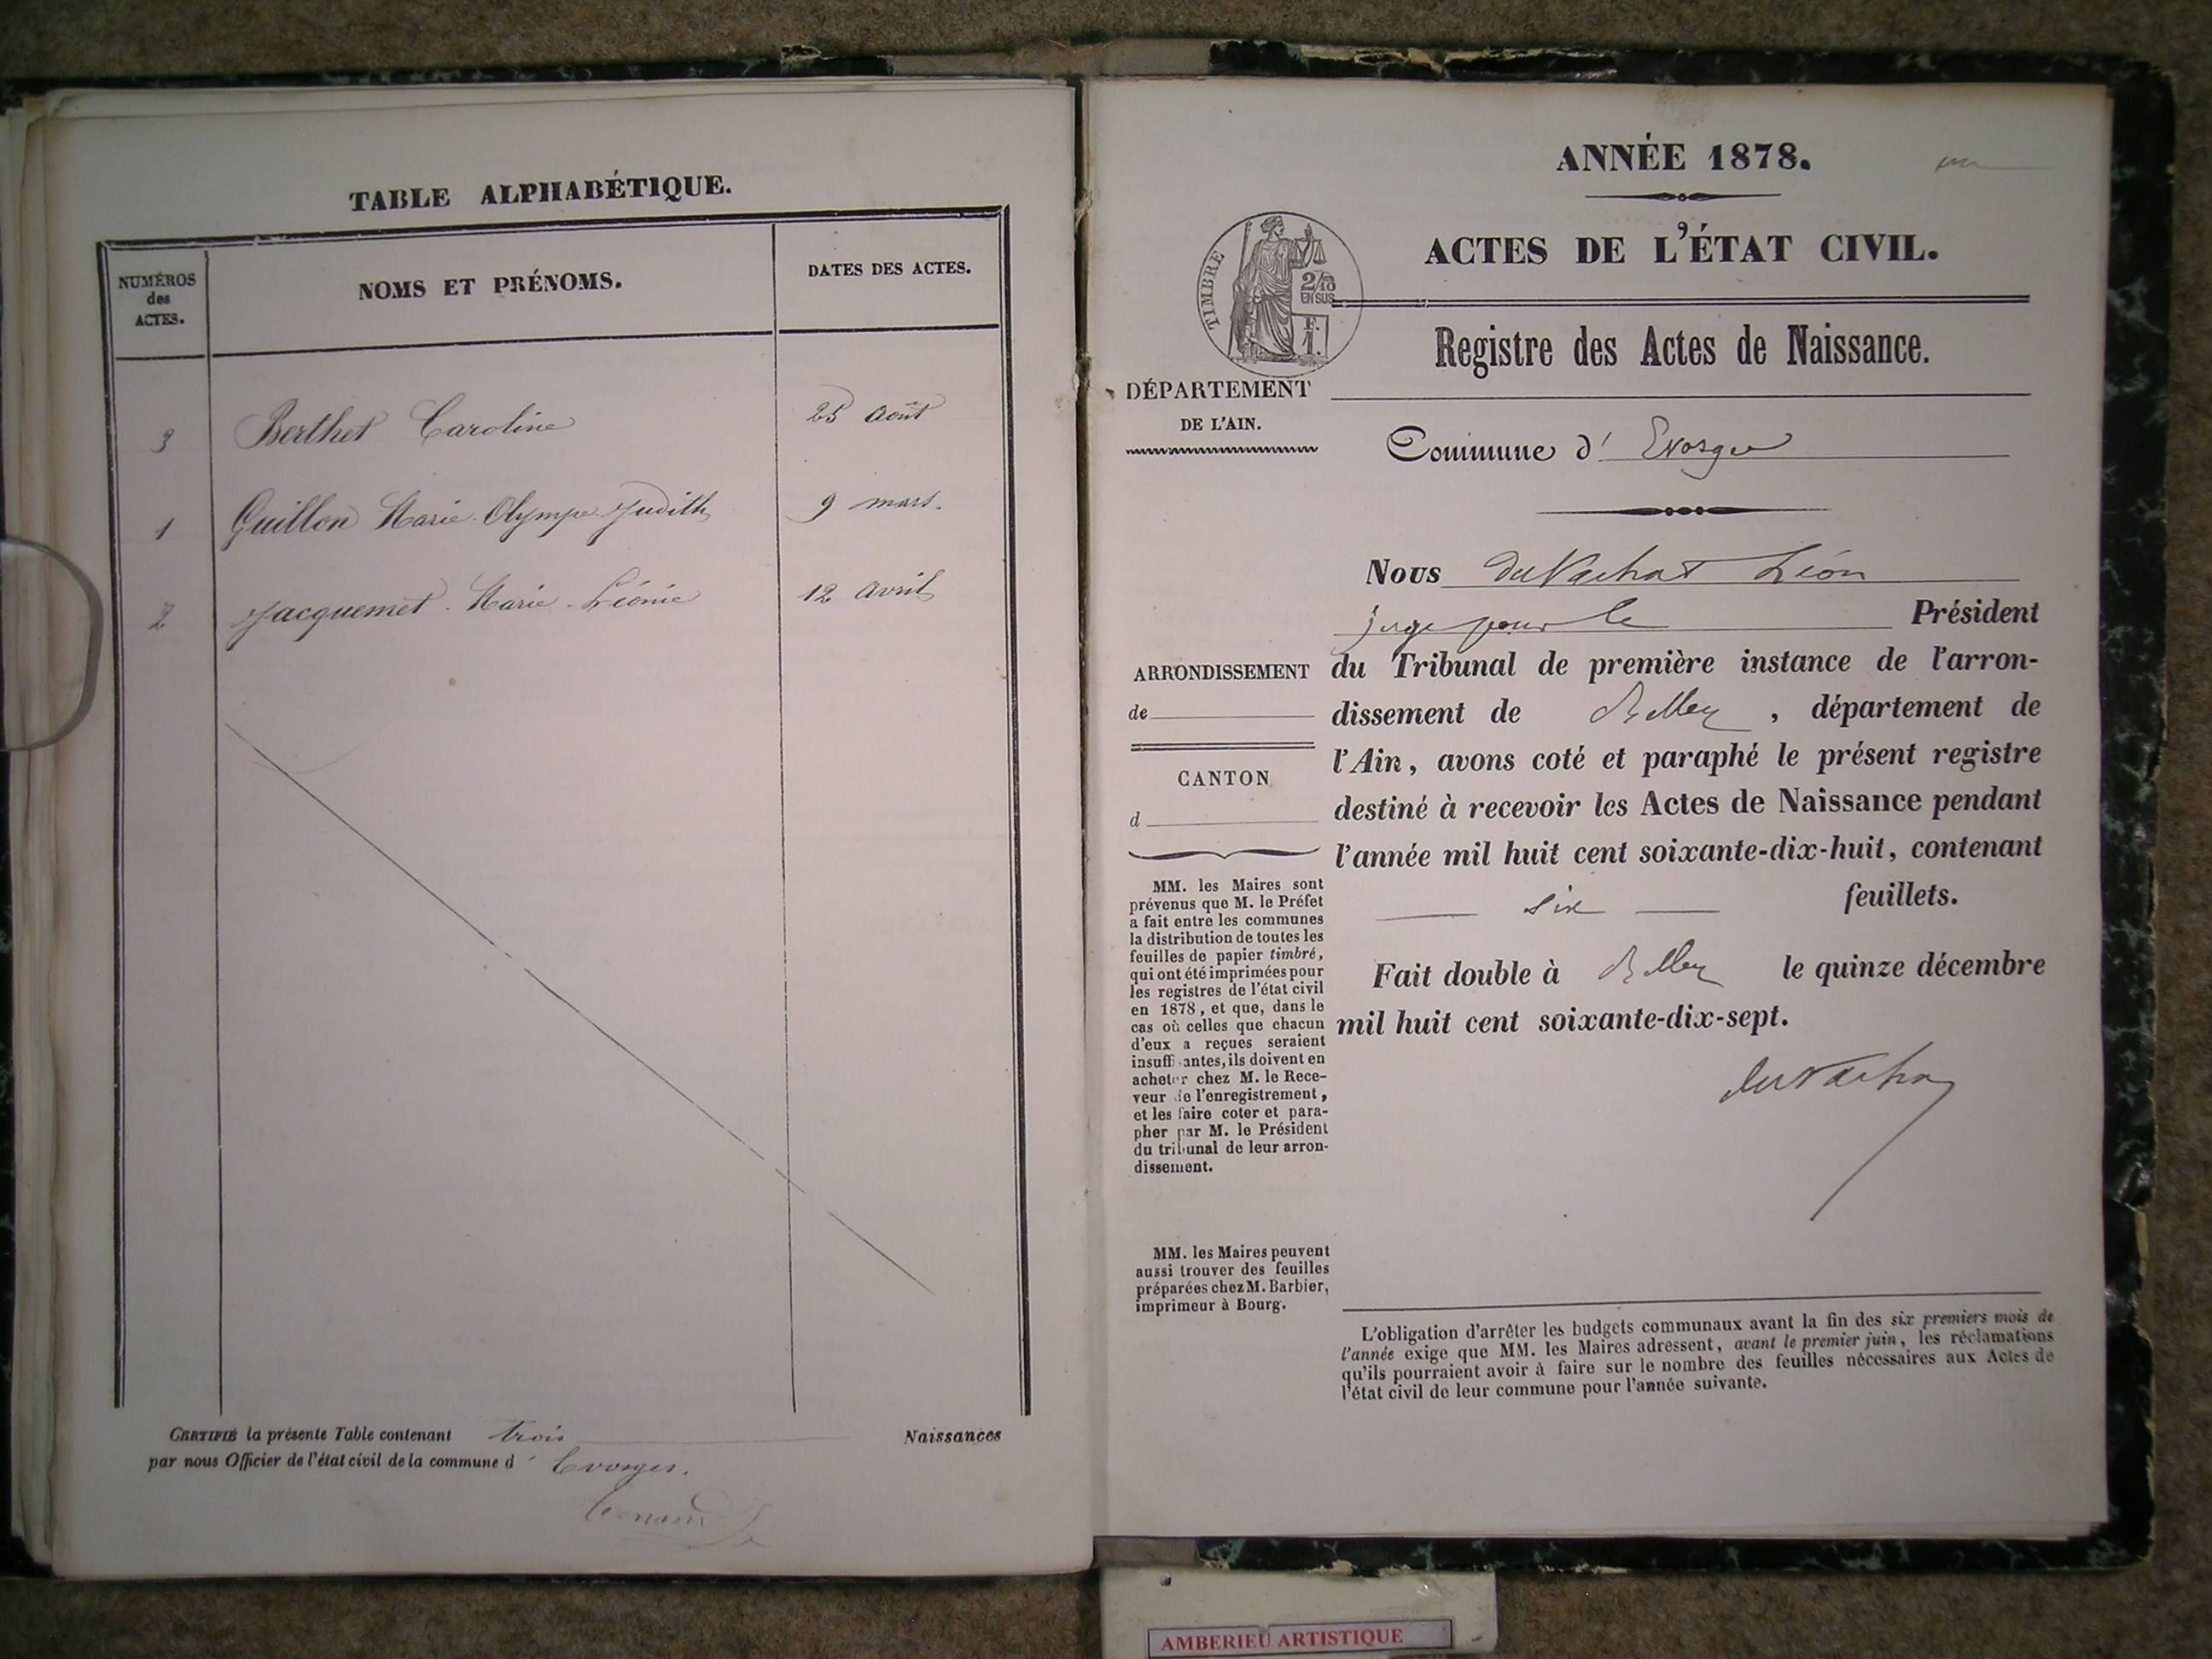 TABLE ALPHABÉTIQUE.
NUMÉROS
des
ACTES.
NOMS ET PRÉNOMS.
DATES DES ACTES.
3 Berthet Caroline 25 août
1 Guillon Marie Olympe Judith 9 mars.
2 Jacquemet Marie Léonie 12 avril
CERTIFIÉ la présente Table contenant trois Naissances
par nous Officier de l'état civil de la commune d'Evosges.
ANNÉE 1878.
un
ACTES DE L'ÉTAT CIVIL.
TIMBRE
2/10
EN SUS
F.
1.
Registre des Actes de Naissance.
DÉPARTEMENT
DE L'AIN.
Commune d'Evosges
Nous Du Vachat Léon
juge pour le Président
du Tribunal de première instance de l'arron-
dissement de Belley, département de
l'Ain, avons coté et paraphé le présent registre
destiné à recevoir les Actes de Naissance pendant
l'année mil huit cent soixante-dix-huit, contenant
six feuillets.
Fait double à Belley le quinze décembre
mil huit cent soixante-dix-sept.
du Vachat
ARRONDISSEMENT
de
CANTON
d
MM. les Maires sont
prévenus que M. le Préfet
a fait entre les communes
la distribution de toutes les
feuilles de papier timbré,
qui ont été imprimées pour
les registres de l'état civil
en 1878, et que, dans le
cas où celles que chacun
d'eux a reçues seraient
insuffisantes, ils doivent en
acheter chez M. le Rece-
veur de l'enregistrement,
et les faire coter et para-
pher par M. le Président
du tribunal de leur arron-
dissement.
MM. les Maires peuvent
aussi trouver des feuilles
préparées chez M. Barbier,
imprimeur à Bourg.
L'obligation d'arrêter les budgets communaux avant la fin des six premiers mois de
l'année exige que MM. les Maires adressent, avant le premier juin, les réclamations
qu'ils pourraient avoir à faire sur le nombre des feuilles nécessaires aux Actes de
l'état civil de leur commune pour l'année suivante.
AMBERIEU ARTISTIQUE